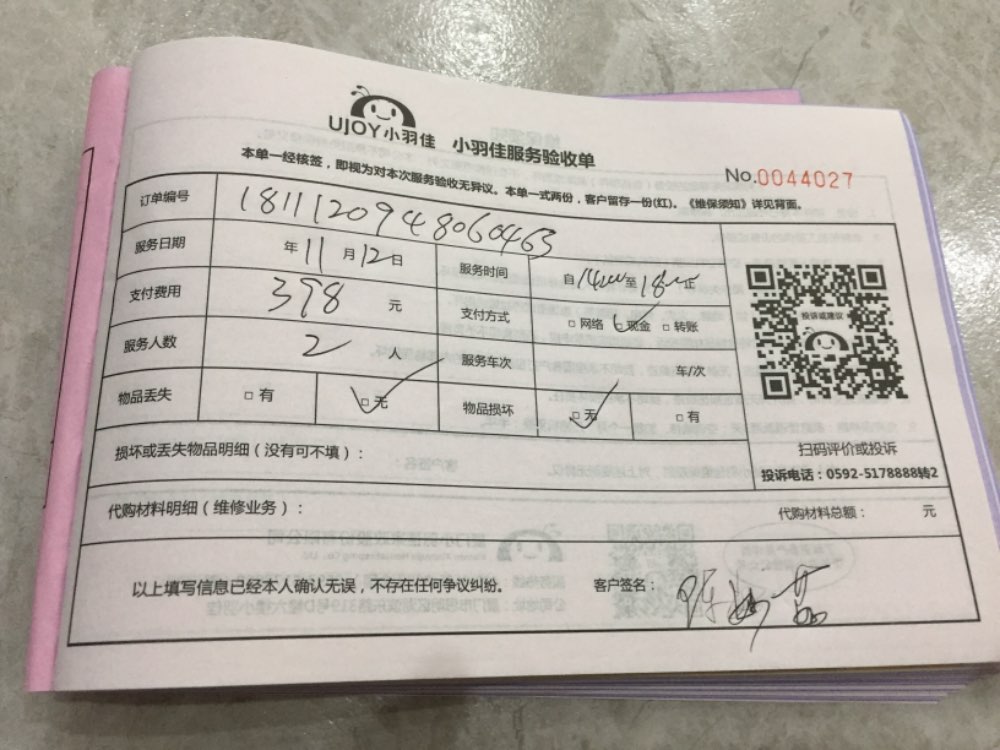 UJOY小羽佳 小羽佳服务验收单
本单一经核签，即视为对本次服务验收无异议。本单一式两份，客户留存一份(红)。《维保须知》详见背面。
No.0044027
订单编号 1811120948060463
服务日期 年 11 月 12 日 服务时间 自 14 至 18 止
支付费用 398 元 支付方式 □ 网络 □ 现金 □ 转账
服务人数 2 人 服务车次 车/次
物品丢失 □ 有 □ 无 物品损坏 □ 无 □ 有
投诉或建议
扫码评价或投诉
投诉电话：0592-5178888转2
损坏或丢失物品明细（没有可不填）：
代购材料明细（维修业务）： 代购材料总额： 元
以上填写信息已经本人确认无误，不存在任何争议纠纷。 客户签名：